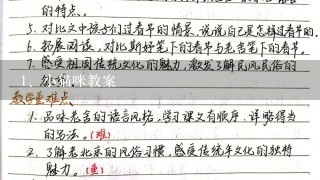 的特点。
5. 对比文中孩子们过春节的情景,说说自己是怎样过春节的。
6. 拓展阅读,对比斯好笔下的春节与老舍笔下的春节。
7. 感受祖国传统文化的魅力,激发了解民风民俗的
1、小猫咪教案
教学重难点
1. 品味老舍的语言风格,学习课文有顺序、详略得当
的写法。(难)
2. 了解老北京的风俗习惯,感受传统年文化的独特
魅力。(重)